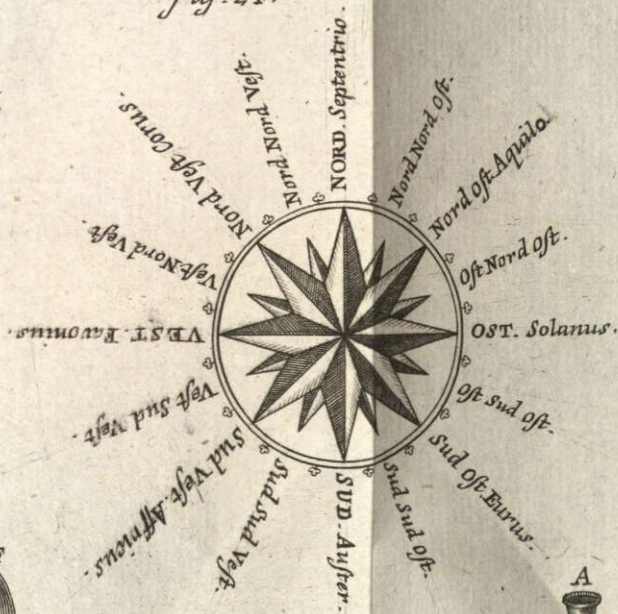 NORD. Septentrio.
Nord Nord Oſt.
Nord Oſt Aquilo
Oſt Nord Oſt.
OST. Solanus.
Oſt Sud Oſt.
Sud Oſt Eurus.
Sud Sud Oſt.
SUD. Auſter.
Sud Sud Veſt.
Sud Veſt. Affricus.
Veſt Sud Veſt.
VEST. Favonius.
Veſt Nord Veſt.
Nord Veſt Corus.
Nord Nord Veſt.
A